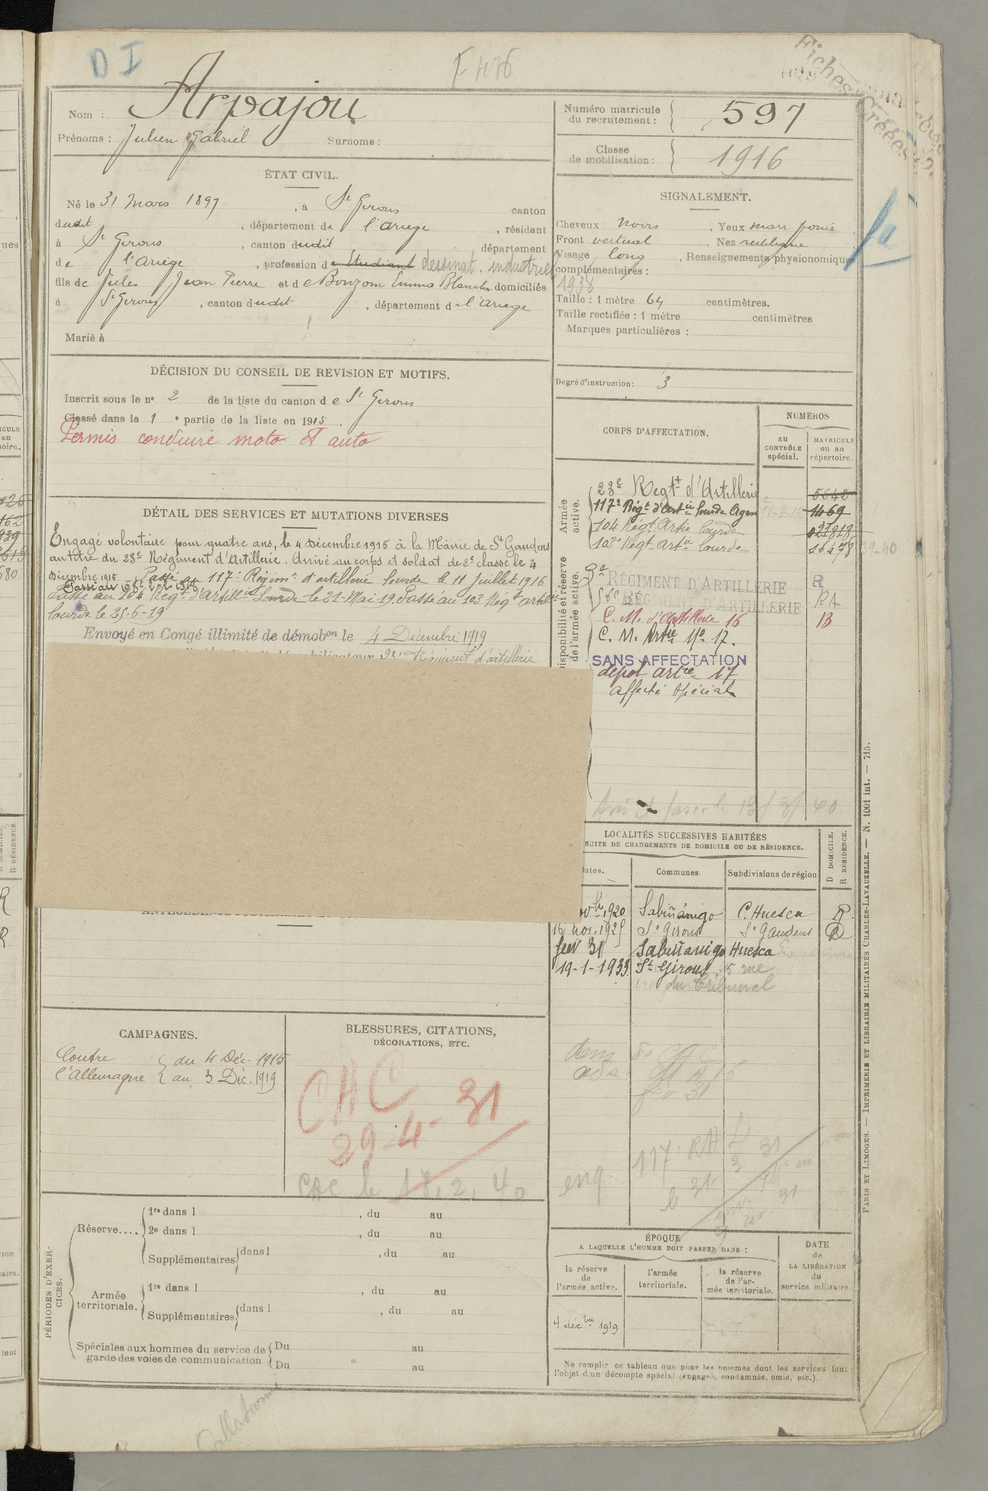 D I
F 446
Nom : Arpajou
Prénoms : Julien Gabriel Surnoms :
ÉTAT CIVIL.
Né le 31 Mars 1897, à St Girons canton
dudit, département de l'Ariège, résidant
à St Girons, canton dudit département
de l'Ariège, profession de Etudiant dessinat. industriel
fils de Jules Jean Pierre et de Bonzom Emma Blanche domiciliés
à St Girons, canton dudit, département de l'Ariège
Marié à
DÉCISION DU CONSEIL DE REVISION ET MOTIFS.
Inscrit sous le n° 2 de la liste du canton de St Girons
Classé dans la 1e partie de la liste en 1915.
Permis conduire moto et auto
DÉTAIL DES SERVICES ET MUTATIONS DIVERSES
Engagé volontaire pour quatre ans, le 4 décembre 1915 à la Mairie de St Gaudens
au titre du 23e Régiment d'Artillerie. Arrivé au corps et soldat de 2e classe le 4
décembre 1915. Passé au 117e Régim. d'artillerie lourde le 11 Juillet 1916
Passé au 104 Régt d'Artillie Lourde le 21-Mai 19. Passé au 103 Régt artilie
lourde le 25-6-19
Envoyé en Congé illimité de démobon le 4 Décembre 1919
Régiment d'artillerie
CAMPAGNES.
Contre l'Allemagne { du 4 Déc. 1915
au 3 Déc. 1919
BLESSURES, CITATIONS,
DÉCORATIONS, ETC.
CAC 31
29-4-
CAC le 17.2.40
PÉRIODES D'EXERCICES.
Réserve.... 1re dans l , du au
2e dans l , du au
Supplémentaires dans l , du au
Armée territoriale. 1re dans l , du au
Supplémentaires dans l , du au
Spéciales aux hommes du service de garde des voies de communication Du au
Du au
Numéro matricule du recrutement : 597
Classe de mobilisation : 1916
SIGNALEMENT.
Cheveux noirs, Yeux marr foncé
Front vertical, Nez rectiligne
Visage long, Renseignements physionomiques
complémentaires :
1938
Taille : 1 mètre 64 centimètres.
Taille rectifiée : 1 mètre centimètres
Marques particulières :
Degré d'instruction : 3
CORPS D'AFFECTATION.
NUMÉROS
au CONTRÔLE spécial.
MATRICULE ou au répertoire.
Armée active.
23e Regt d'Artillerie 5642
117e Régt d'Artie lourde Agen 1469
104 Régt Artie lourde
103e Régt Artie lourde
Disponibilité et réserve de l'armée active.
RÉGIMENT D'ARTILLERIE R
RÉGIMENT D'ARTILLERIE RA
C. M. d'Artillerie 16 1B
C. M. Artie No 17.
SANS AFFECTATION
dépôt artie 17
affecté spécial
LOCALITÉS SUCCESSIVES HABITÉES
SUITE DE CHANGEMENTS DE DOMICILE OU DE RÉSIDENCE.
Dates. Communes. Subdivisions de région D DOMICILE. R RÉSIDENCE.
1920 Sabiñánigo C. Huesca R
1925 St Girons St Gaudens D
fev 31 Sabiñanigo Huesca
19-1-1933 St Girons, 5 rue
du Tribunal
fev 31
ÉPOQUE
A LAQUELLE L'HOMME DOIT PASSER DANS :
la réserve de l'armée active.
l'armée territoriale.
la réserve de l'armée territoriale.
DATE de LA LIBÉRATION du service militaire.
4 décbre 1919
Ne remplir ce tableau que pour les hommes dont les services font
l'objet d'un décompte spécial (engagés, condamnés, omis, etc.).
PARIS ET LIMOGES. — IMPRIMERIE ET LIBRAIRIE MILITAIRES CHARLES-LAVAUZELLE. — N. 1001 int. — 715.